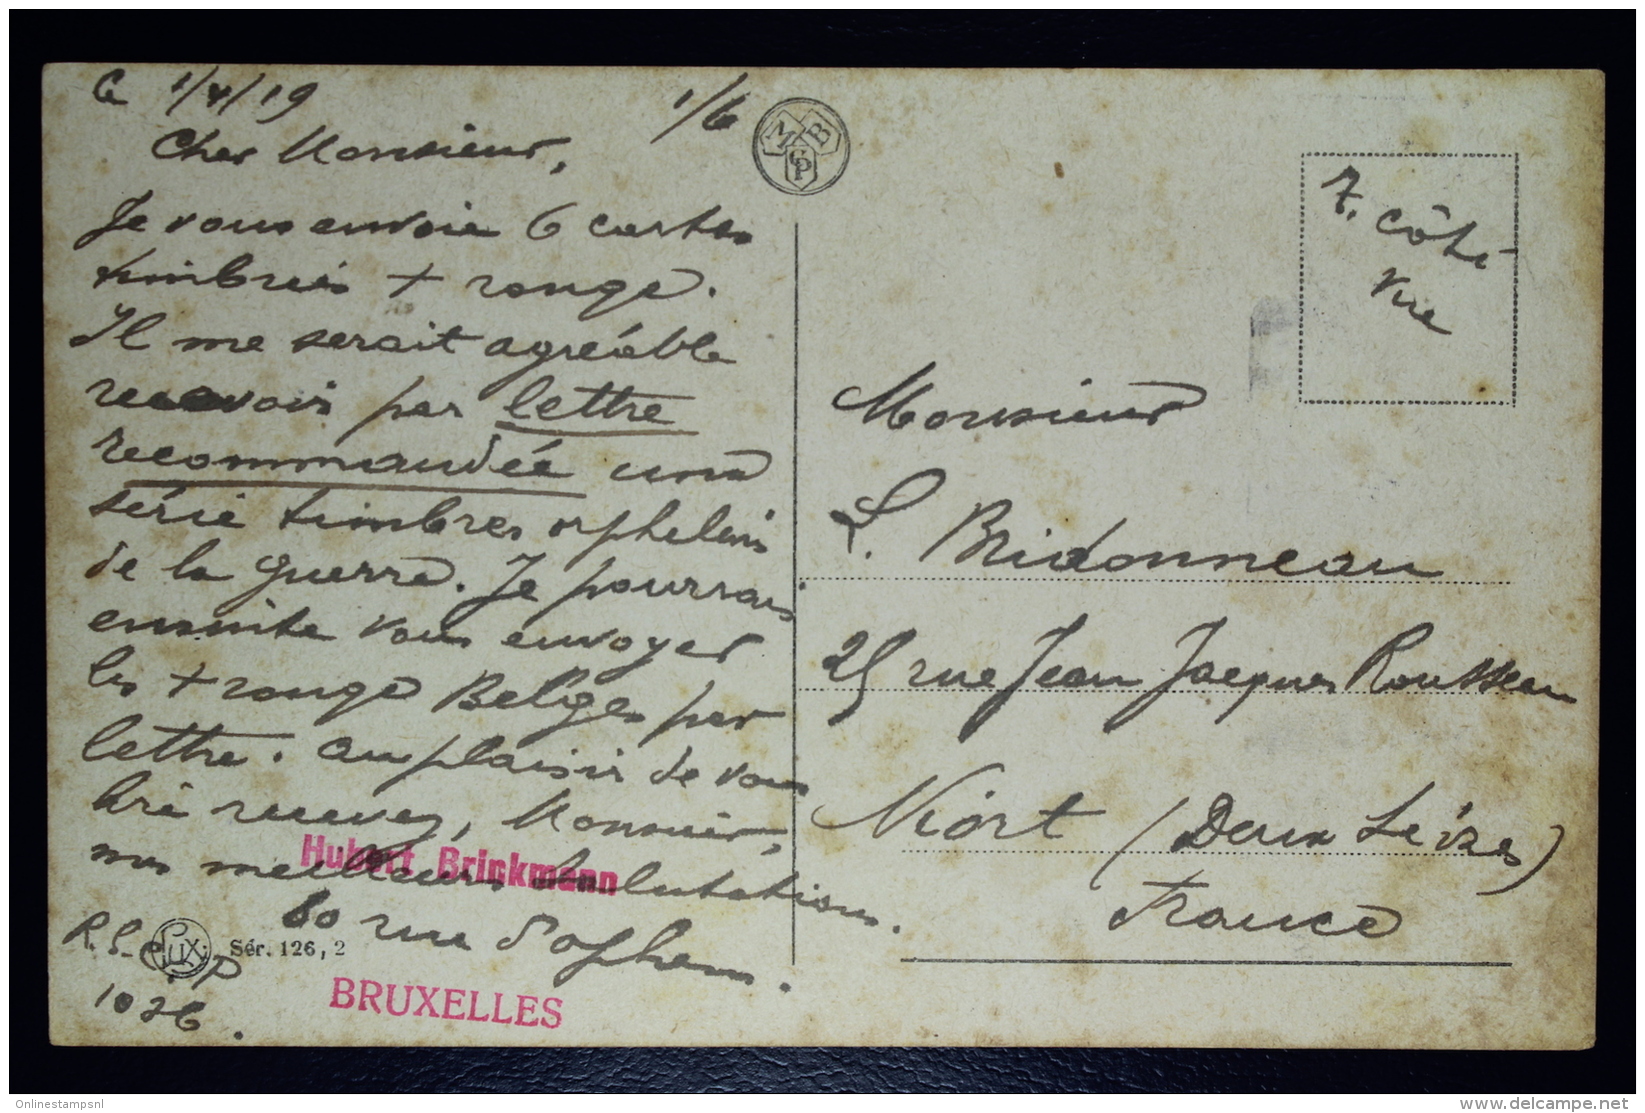 Ce 1/4/19
1/6
Cher Monsieur,
Je vous envoie 6 cartes
timbrées + rouge.
Il me serait agréable
recevoir par lettre
recommandée une
série timbres orphelins
de la guerre. Je pourrais
ensuite vous envoyer
les + rouge Belges par
lettre. au plaisir de vous
lire recevez, Monsieur,
mes meilleures salutations.
Hubert Brinkmann
60 rue d'ophem.
BRUXELLES
R.S.C.P
1026.
LUX
Sér. 126, 2
M B
C P
T. côté
vue
Monsieur
L. Bridonneau
25 rue Jean Jacques Rousseau
Niort (Deux Sèvres)
France
Onlinestampsnl
www.delcampe.net